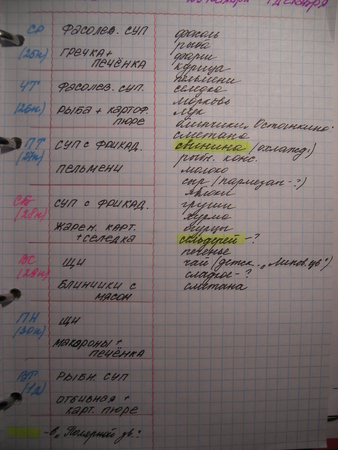 СР
(25н)
ФАСОЛЕВ. СУП
ГРЕЧКА +
ПЕЧЁНКА
ЧТ
(26н)
ФАСОЛЕВ. СУП.
РЫБА + КАРТОФ.
ПЮРЕ
ПТ
(27н)
СУП С ФРИКАД.
ПЕЛЬМЕНИ
СБ
(28н)
СУП С ФРИКАД.
ЖАРЕН. КАРТ.
+ СЕЛЕДКА
ВС
(29н)
ЩИ
БЛИНЧИКИ С
МЯСОМ
ПН
(30н)
ЩИ
МАКАРОНЫ +
ПЕЧЁНКА
ВТ
(1д)
РЫБН. СУП
ОТБИВНАЯ +
КАРТ. ПЮРЕ
фасоль
рыба
фарш
курица
пельмени
селедка
морковь
лук
блинчики „Останкино"
сметана
свинина (охлажд.)
рыбн. конс.
молоко
сыр (пармезан - ?)
яблоки
груши
хурма
огурцы
сельдерей - ?
печенье
чай (детск.
сладкое - ?
сметана
- в „Полярной зв."